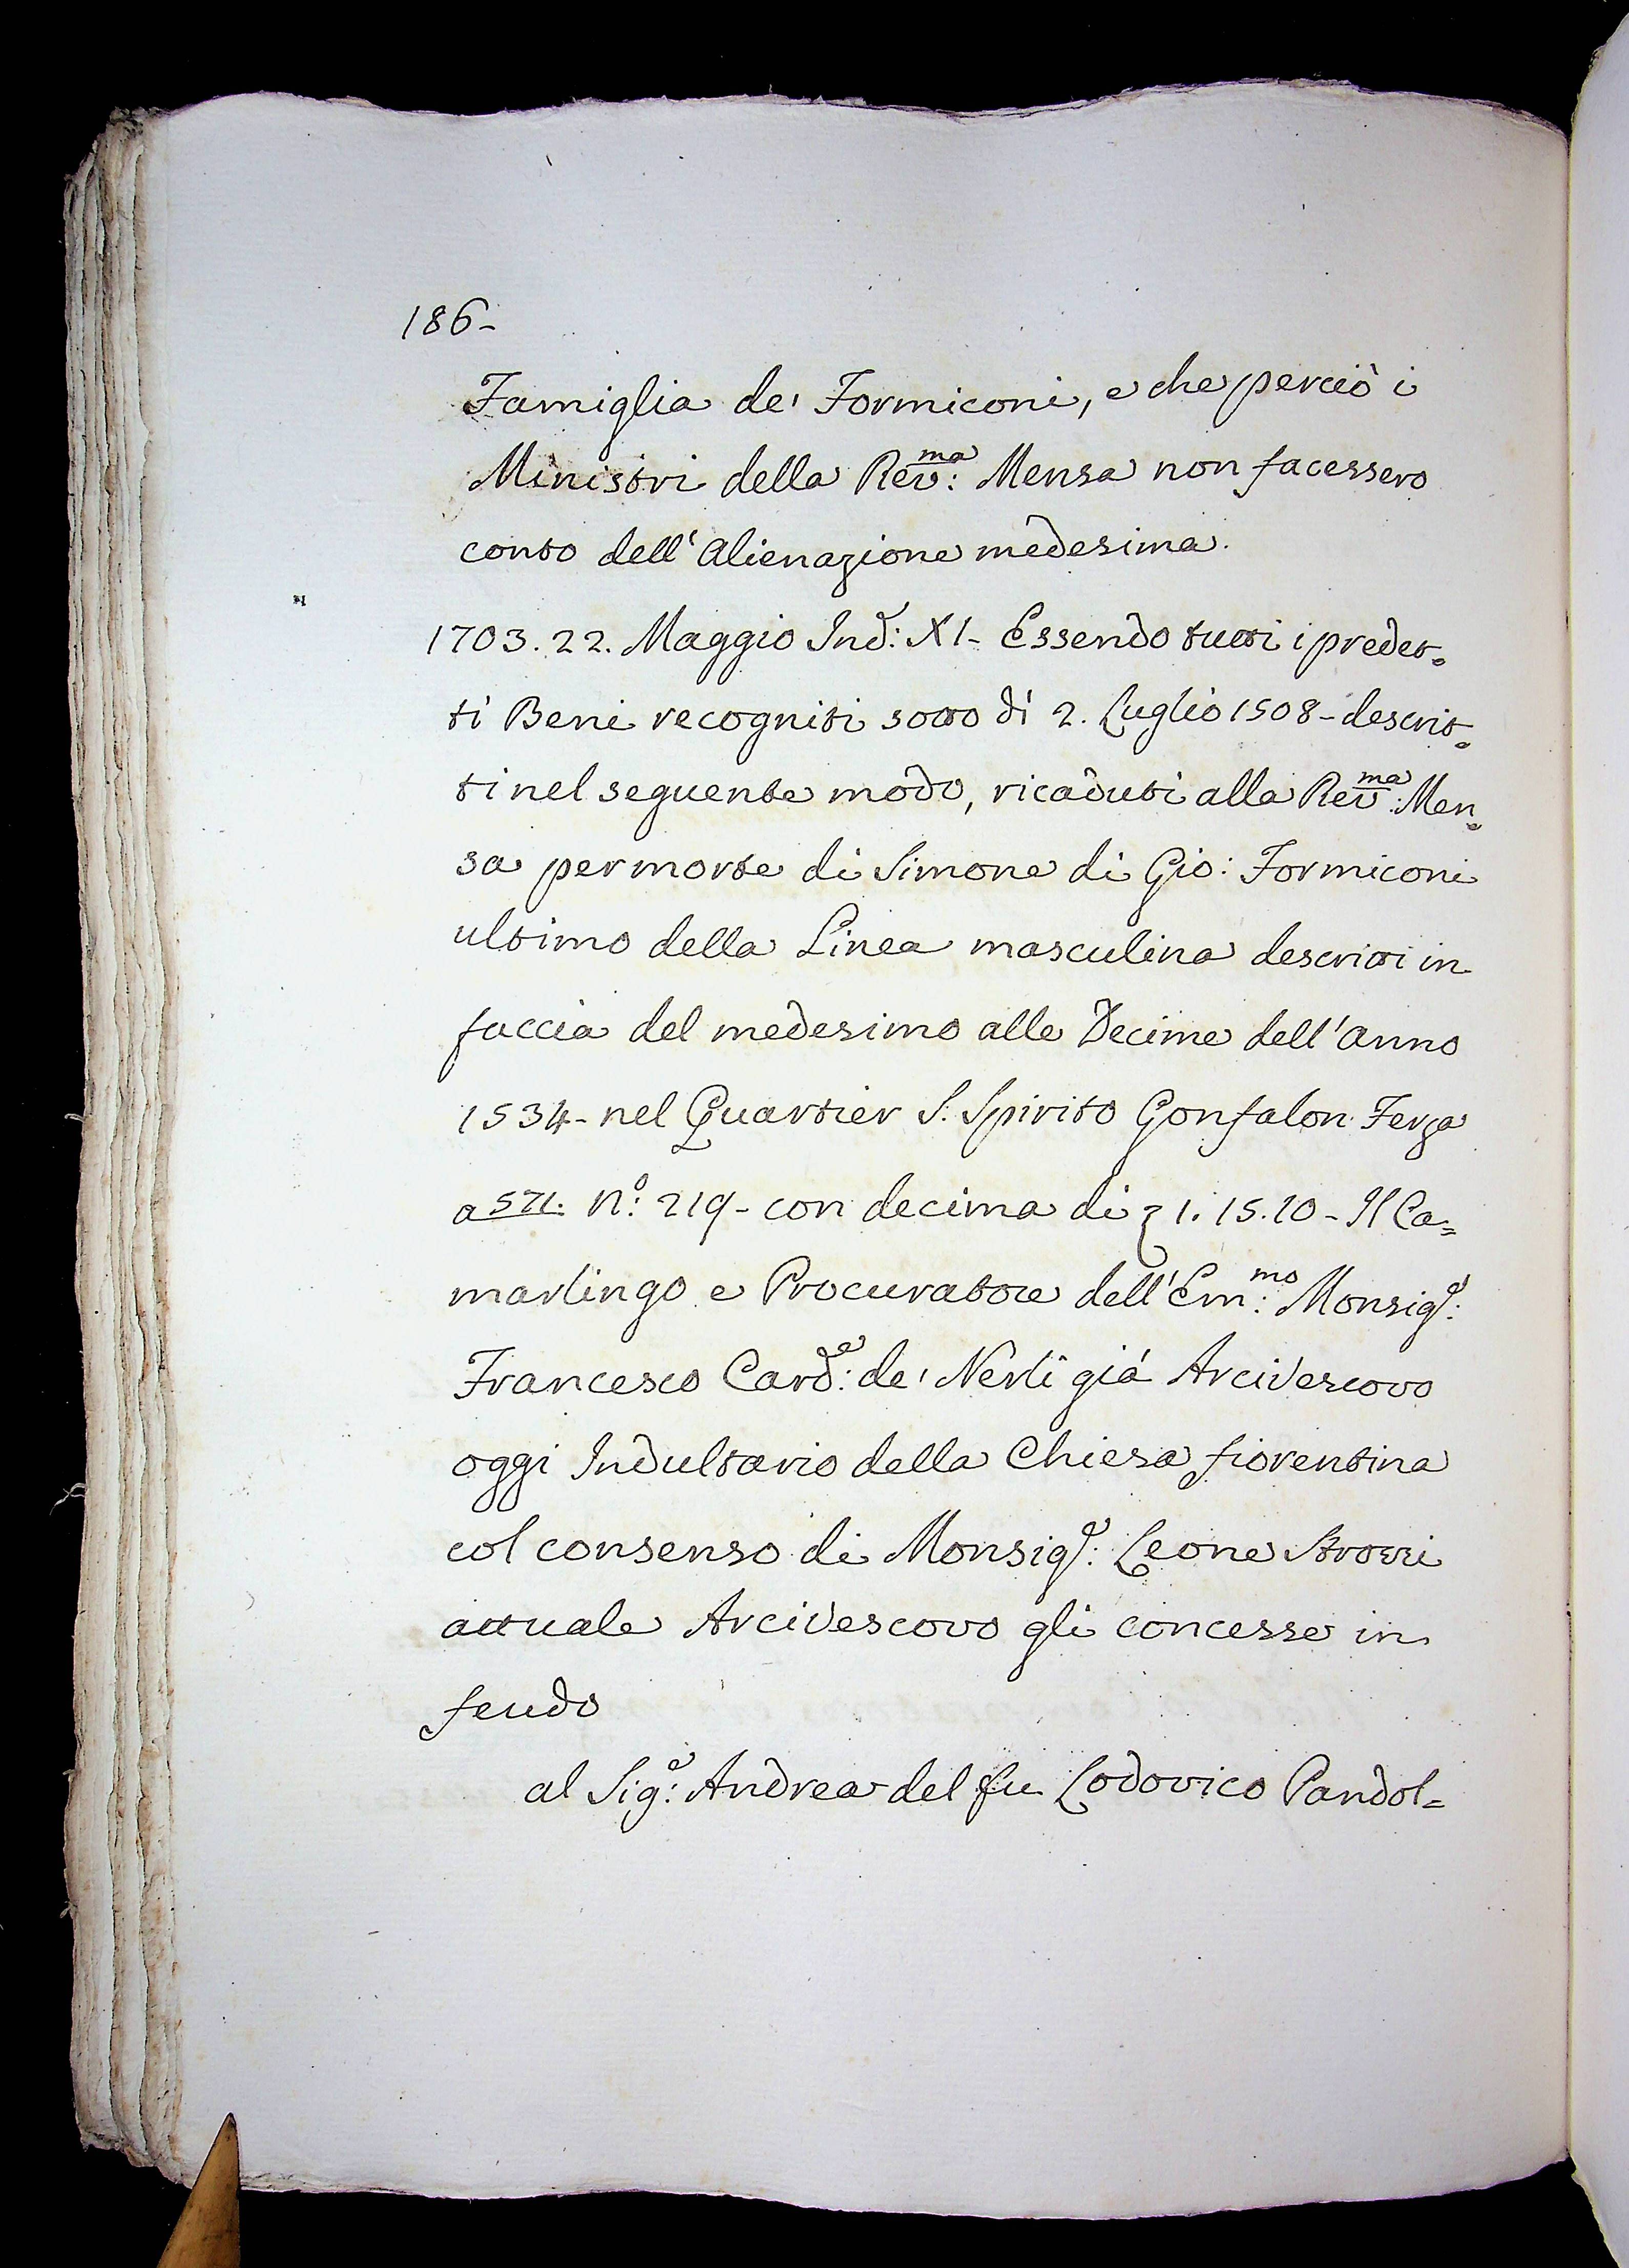 186-
Famiglia de' Formiconi, e che perciò i
Ministri della Rev:ma Mensa non facessero
conto dell'Alienazione medesima.
1703. 22. Maggio Ind: XI- Essendo tutti i predet=
ti Beni recogniti sotto dì 2. Luglio 1508- descrit=
ti nel seguente modo, ricaduti alla Rev:ma Men=
sa per morte di Simone di Gio: Formiconi
ultimo della Linea masculina descritti in
faccia del medesimo alle Decime dell'Anno
1534- nel Quartier S. Spirito Gonfalon Ferza
a 571. N.o 219- con decima di ƒ 1. 15. 10- Il Ca=
marlingo e Procuratore dell'Em:mo Monsig.e:
Francesco Card:e de' Nerli già Arcivescovo
oggi Indultario della Chiesa fiorentina
col consenso di Monsig.e: Leone Strozzi
attuale Arcivescovo gli concesse in
feudo
al Sig:e Andrea del fu Lodovico Pandol=